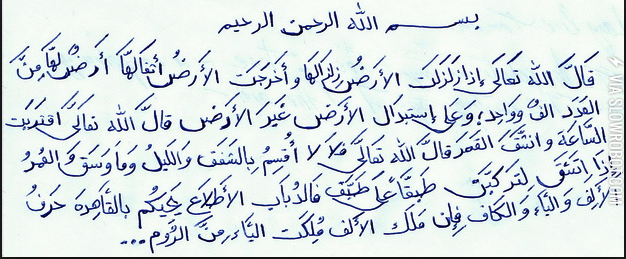 بسم الله الرحمن الرحيم
قال الله تعالى إذا زلزلت الأرض زلزالها وأخرجت الأرض أثقالها أرض لها من
العدد ألف وواحد، وعلى إستبدال الأرض غير الأرض قال الله تعالى اقتربت
الساعة وانشق القمر قال الله تعالى فلا لا أقسم بالشفق والليل وما وسق والقمر
إذا اتسق لتركبن طبقا على طبق فالدباب الأطلاع يجيكم بالقاهرة حرف
الألف والياء والكاف فإن ملك الألف ملكت الياء من الروم...
VIA SLOWROBOT.COM